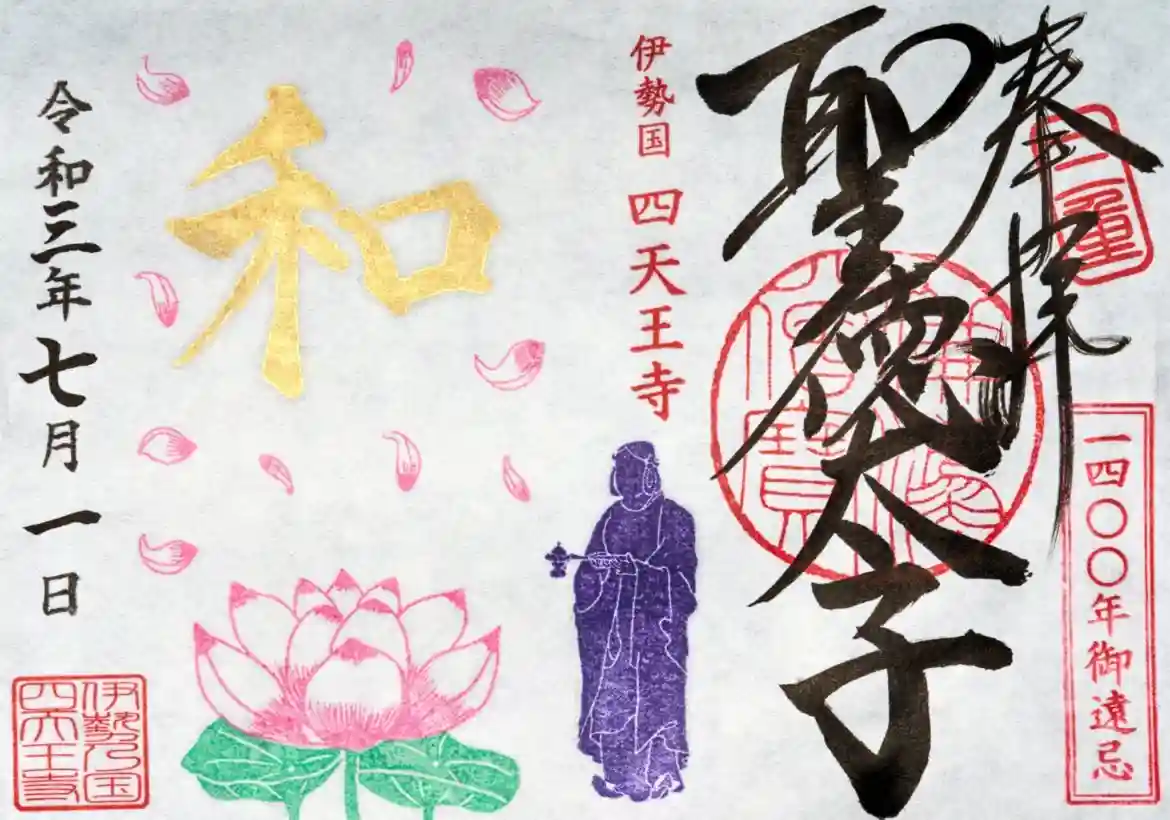 奉拝
三重
一四〇〇年御遠忌
聖徳太子
佛法僧寳
伊勢国 四天王寺
和
令和三年七月一日
伊勢国
四天王寺